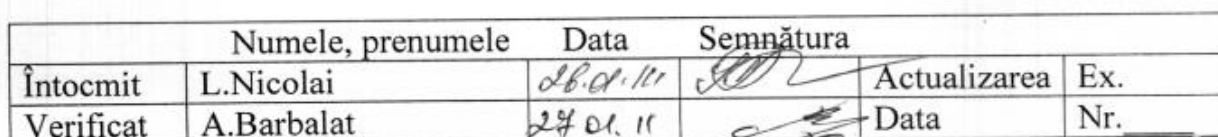 Numele, prenumele Data Semnătura
Întocmit L.Nicolai Actualizarea Ex.
Verificat A.Barbalat 27 01. 11 Data Nr.